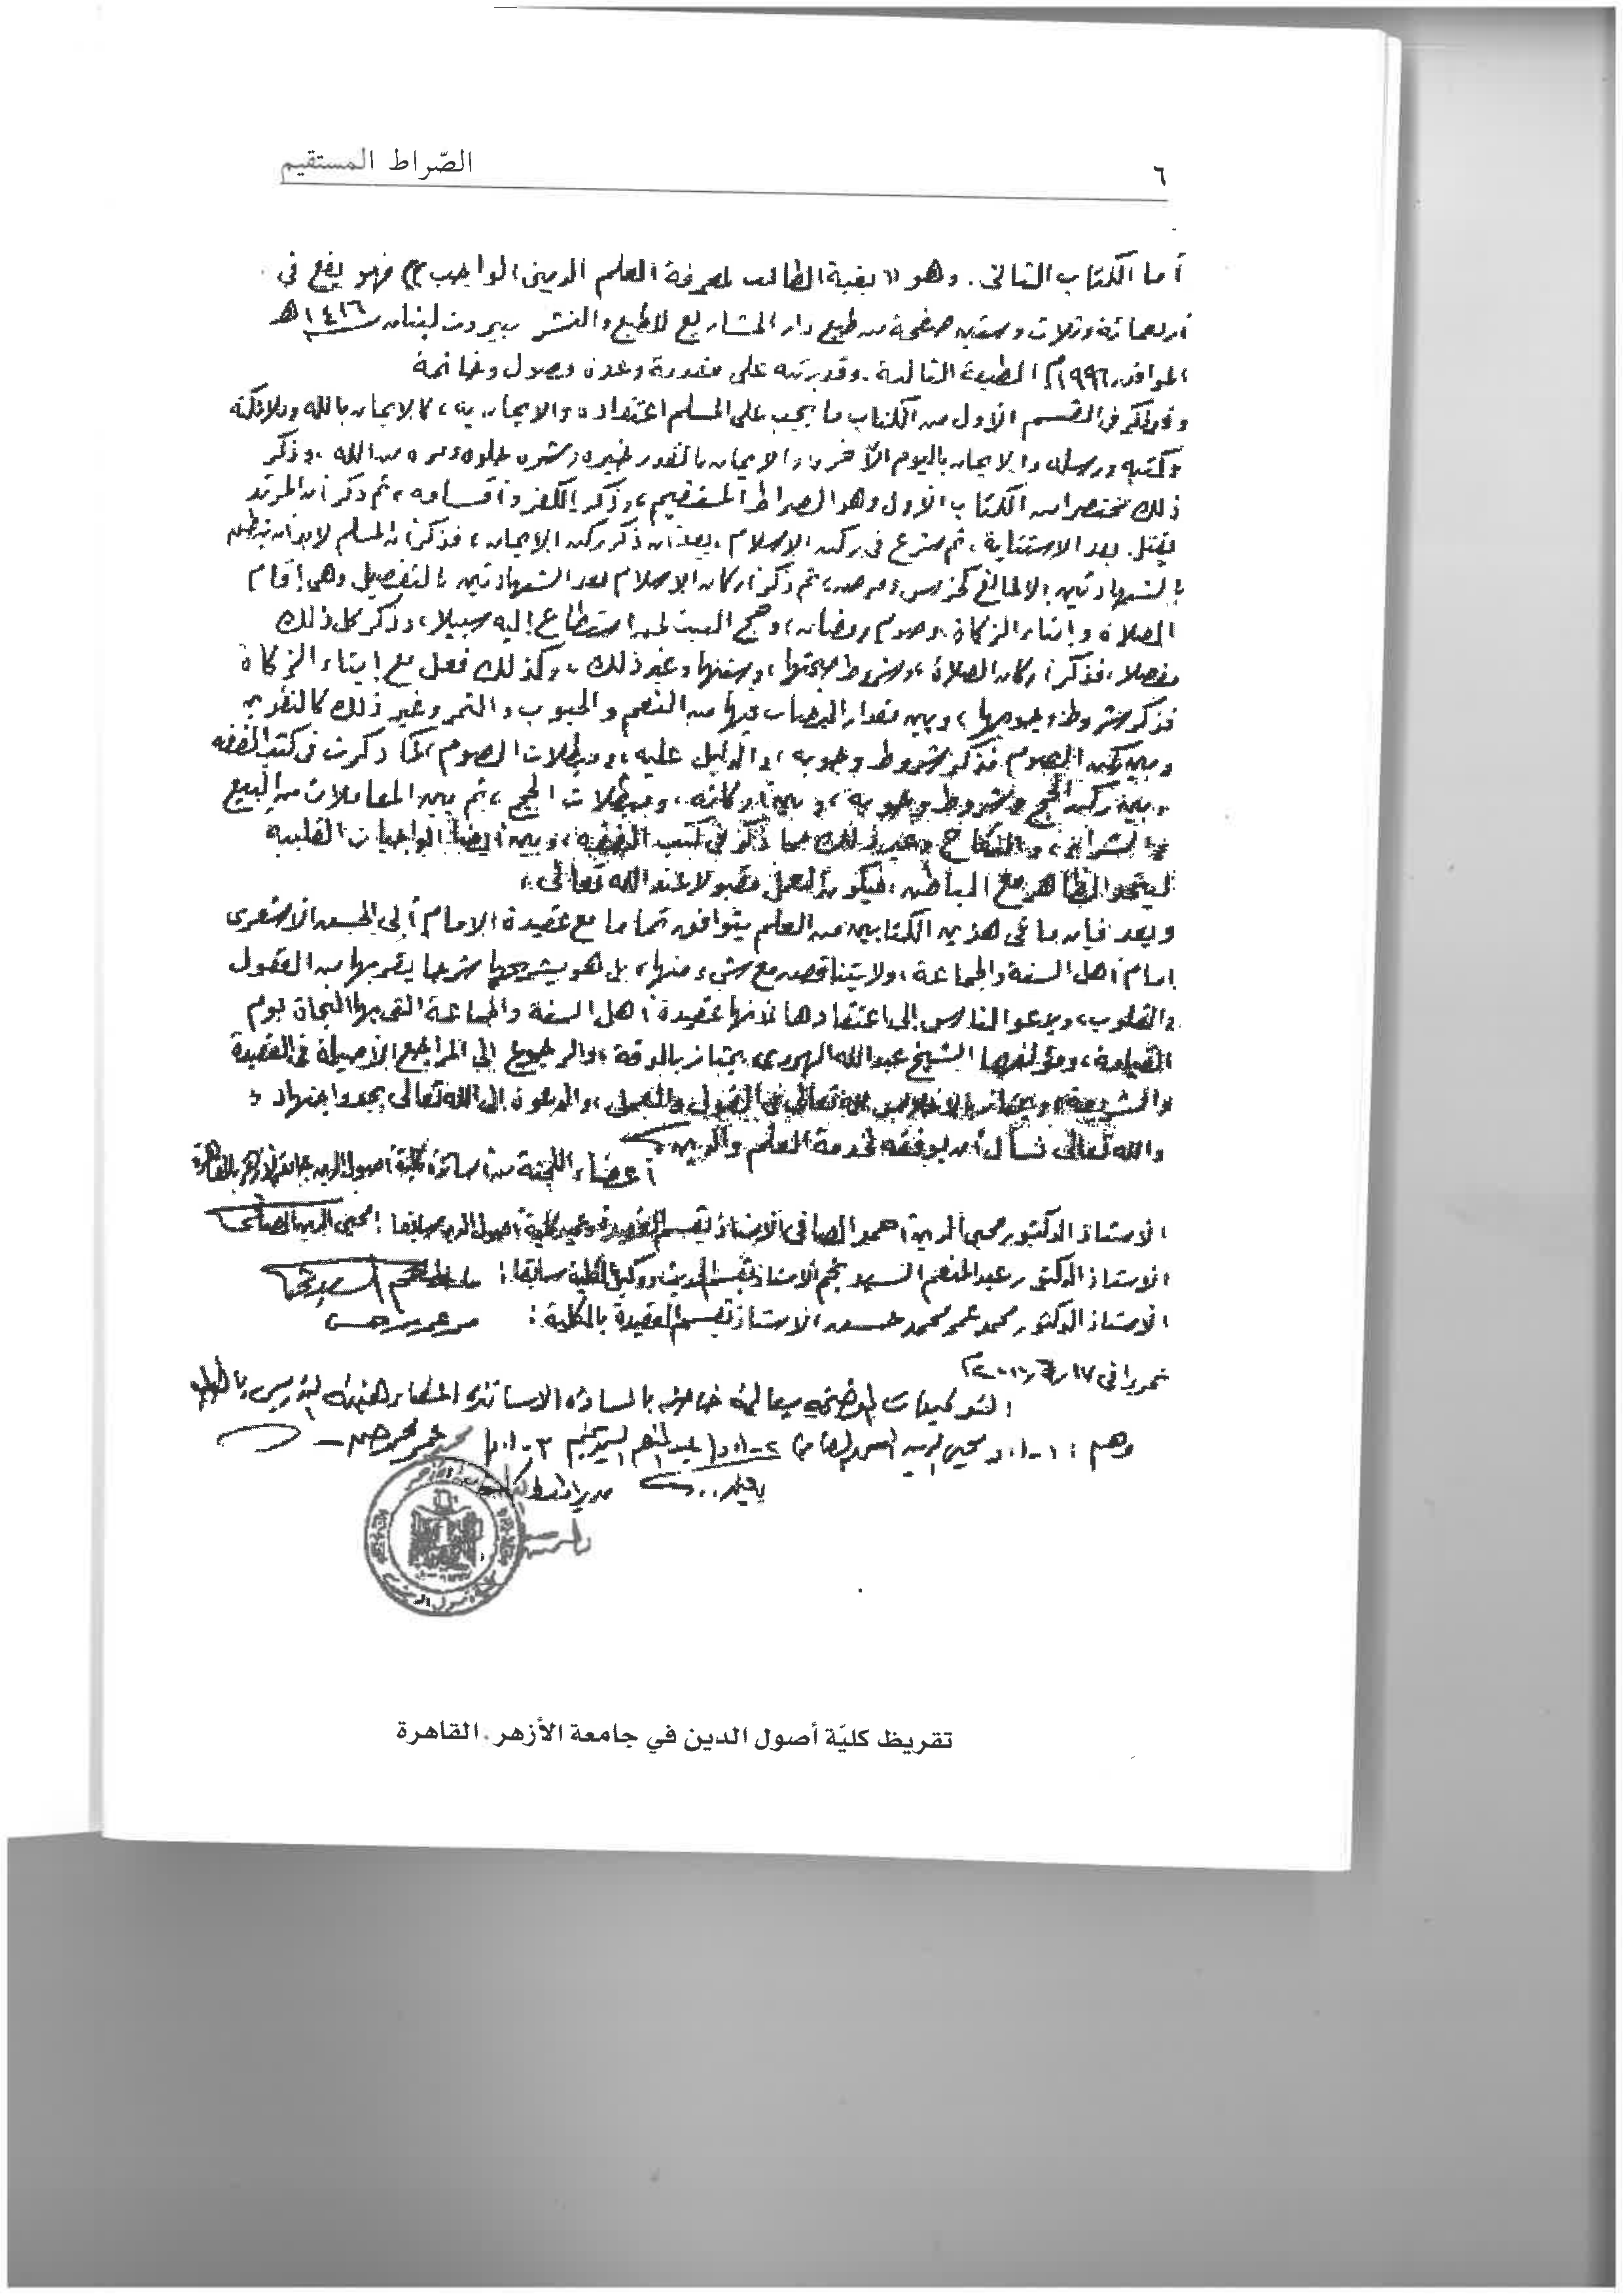 ٦
الصّراط المستقيم
أما الكتاب الثانى. وهو «بغية الطالب لمعرفة العلم الدينى الواجب» فهو يقع فى
أربعمائة وثلاث وستين صفحة من طبع دار المشاريع للطبع والنشر بيروت لبنان سنة ١٤١٦هـ
الموافق ١٩٩٦م الطبعة الثالثة. وقد رتبه على مقدمة وعدة فصول وخاتمة
وقد ذكر فى القسم الأول من الكتاب ما يجب على المسلم اعتقاده والإيمان به، كالإيمان بالله وملائكته
وكتبه ورسله والإيمان باليوم الآخر والإيمان بالقدر خيره وشره حلوه ومره من الله، وذكر
ذلك مختصرا من الكتاب الأول وهو الصراط المستقيم، وذكر الكفر وأقسامه، ثم ذكر أن المرتد
يقتل بعد الاستتابة، ثم شرع فى ركن الإسلام بعد أن ذكر ركن الإيمان، فذكر أن المسلم لابد أن ينطق
بالشهادتين إلا لمانع كخرس ومرض، ثم ذكر أركان الإسلام بعد الشهادتين بالتفصيل وهى إقام
الصلاة وإيتاء الزكاة وصوم رمضان، وحج البيت لمن استطاع إليه سبيلا، وذكر كل ذلك
مفصلا، فذكر أركان الصلاة، وشروط صحتها، وسننها وغير ذلك، وكذلك فعل مع إيتاء الزكاة
فذكر شروط وجوبها، وبين مقدار النصاب فيها من النعم والحبوب والتمر وغير ذلك كالنقدين
وبين ركن الصوم فذكر شروط وجوبه، والدليل عليه، ومبطلات الصوم كما ذكرت فى كتب الفقه
وبين ركن الحج وشروط وجوبه، وبين أركانه، ومبطلات الحج، ثم بين المعاملات من البيع
والشراء، والنكاح وغير ذلك مما ذكر فى كتب الفقه، وبين أيضا الواجبات القلبية
ليتحد الظاهر مع الباطن، فيكون العمل مقبولا عند الله تعالى،
وبعد فإن ما فى هذين الكتابين من العلم يتوافق تماما مع عقيدة الإمام أبى الحسن الأشعرى
إمام أهل السنة والجماعة، ولا يتناقض مع شىء منها، بل هو يشرحها شرحا يقربها من العقول
والقلوب، ويدعو الناس إلى اعتقادها لأنها عقيدة أهل السنة والجماعة التى بها النجاة يوم
القيامة، ومؤلفهما الشيخ عبد الله الهررى، يمتاز بالدقة، والرجوع إلى المراجع الأصيلة فى العقيدة
والشريعة، ويمتاز بالإخلاص لله تعالى فى القول والعمل، والدعوة إلى الله تعالى بجد واجتهاد؛
والله تعالى نسأل أن يوفقه لخدمة العلم والدين،
أعضاء اللجنة من أساتذة كلية أصول الدين جامعة الأزهر بالقاهرة
الأستاذ الدكتور محيى الدين أحمد الصافى الأستاذ بقسم العقيدة وعميد كلية أصول الدين سابقا: محيى الدين الصافى
الأستاذ الدكتور عبد المنعم السيد نجم الأستاذ بقسم الحديث ووكيل الكلية سابقا: عبد المنعم السيد نجم
الأستاذ الدكتور محمد عمر محمد حسن الأستاذ بقسم العقيدة بالكلية:
تحريرا فى ١٧/٦/٢٠٠١م
التوقيعات الموضحة بعاليه خاصة بالسادة الأساتذة أعضاء هيئة التدريس بالكلية
وهم: ١- أ.د محيى الدين أحمد الصافى ٢- أ.د/ عبد المنعم السيد نجم ٣- أ.د/ محمد عمر محمد حسن
يعتمد..
تقريظ كليّة أصول الدين في جامعة الأزهر. القاهرة